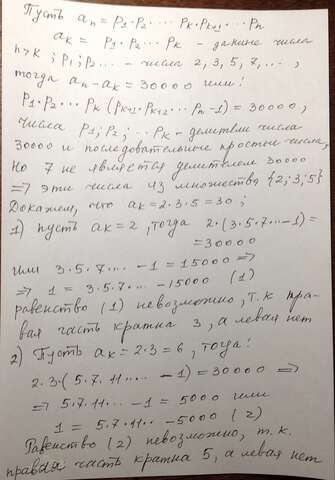 Пусть aₙ = p₁·p₂· ... ·pₖ·pₖ₊₁· ... ·pₙ
aₖ = p₁·p₂... pₖ - данные числа
n>k ; p₁; p₂... - числа 2, 3, 5, 7, ...,
тогда aₙ-aₖ = 30000 или:
p₁·p₂... pₖ (pₖ₊₁·pₖ₊₂... pₙ-1) = 30000,
числа p₁; p₂; ... pₖ - делители числа
30000 и последовательные простые числа,
Но 7 не является делителем 30000
⇒ эти числа из множества {2; 3; 5}
Докажем, что aₖ = 2·3·5 = 30 ;
1) пусть aₖ = 2, тогда 2·(3·5·7·... -1) =
= 30000
или 3·5·7·... - 1 = 15000 ⇒
⇒ 1 = 3·5·7·... -15000 (1)
равенство (1) невозможно, т.к пра-
вая часть кратна 3, а левая нет
2) Пусть aₖ = 2·3 = 6, тогда:
2·3·(5·7·11·... -1) = 30000 ⇒
⇒ 5·7·11·... - 1 = 5000 или
1 = 5·7·11·... -5000 (2)
Равенство (2) невозможно, т.к.
правая часть кратна 5, а левая нет